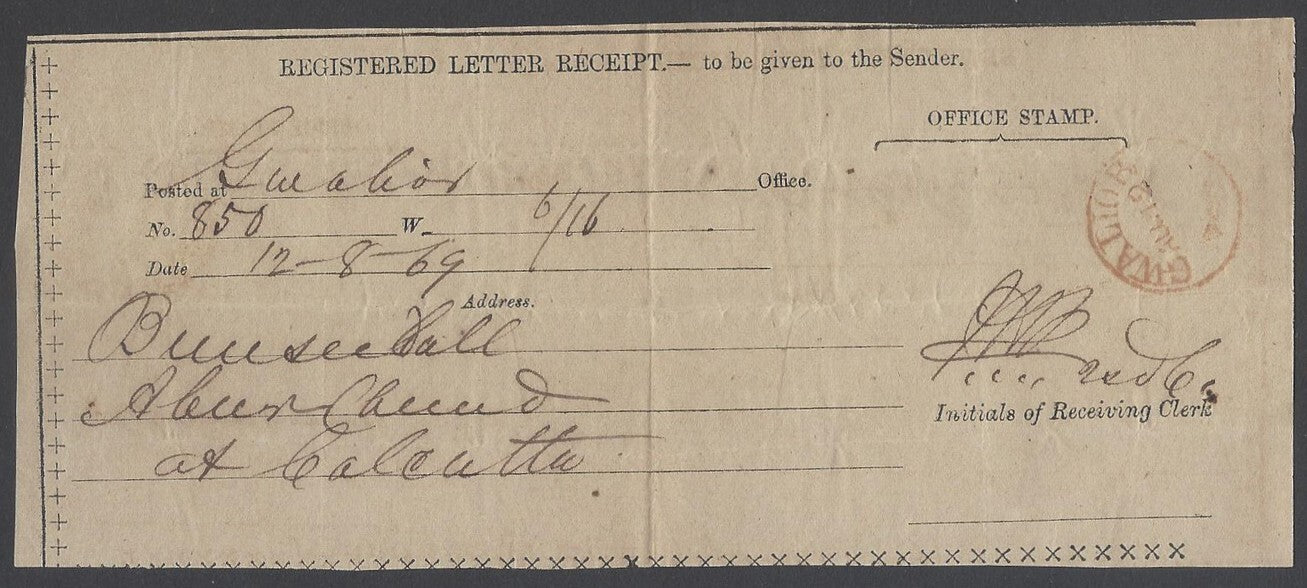 REGISTERED LETTER RECEIPT.— to be given to the Sender.
OFFICE STAMP.
Posted at Gwalior Office.
No. 850 W. 6/16
Date 12-8-69
GWALIOR
Address.
Bunsee Dall
Abeer Chund
at Calcutta
Initials of Receiving Clerk